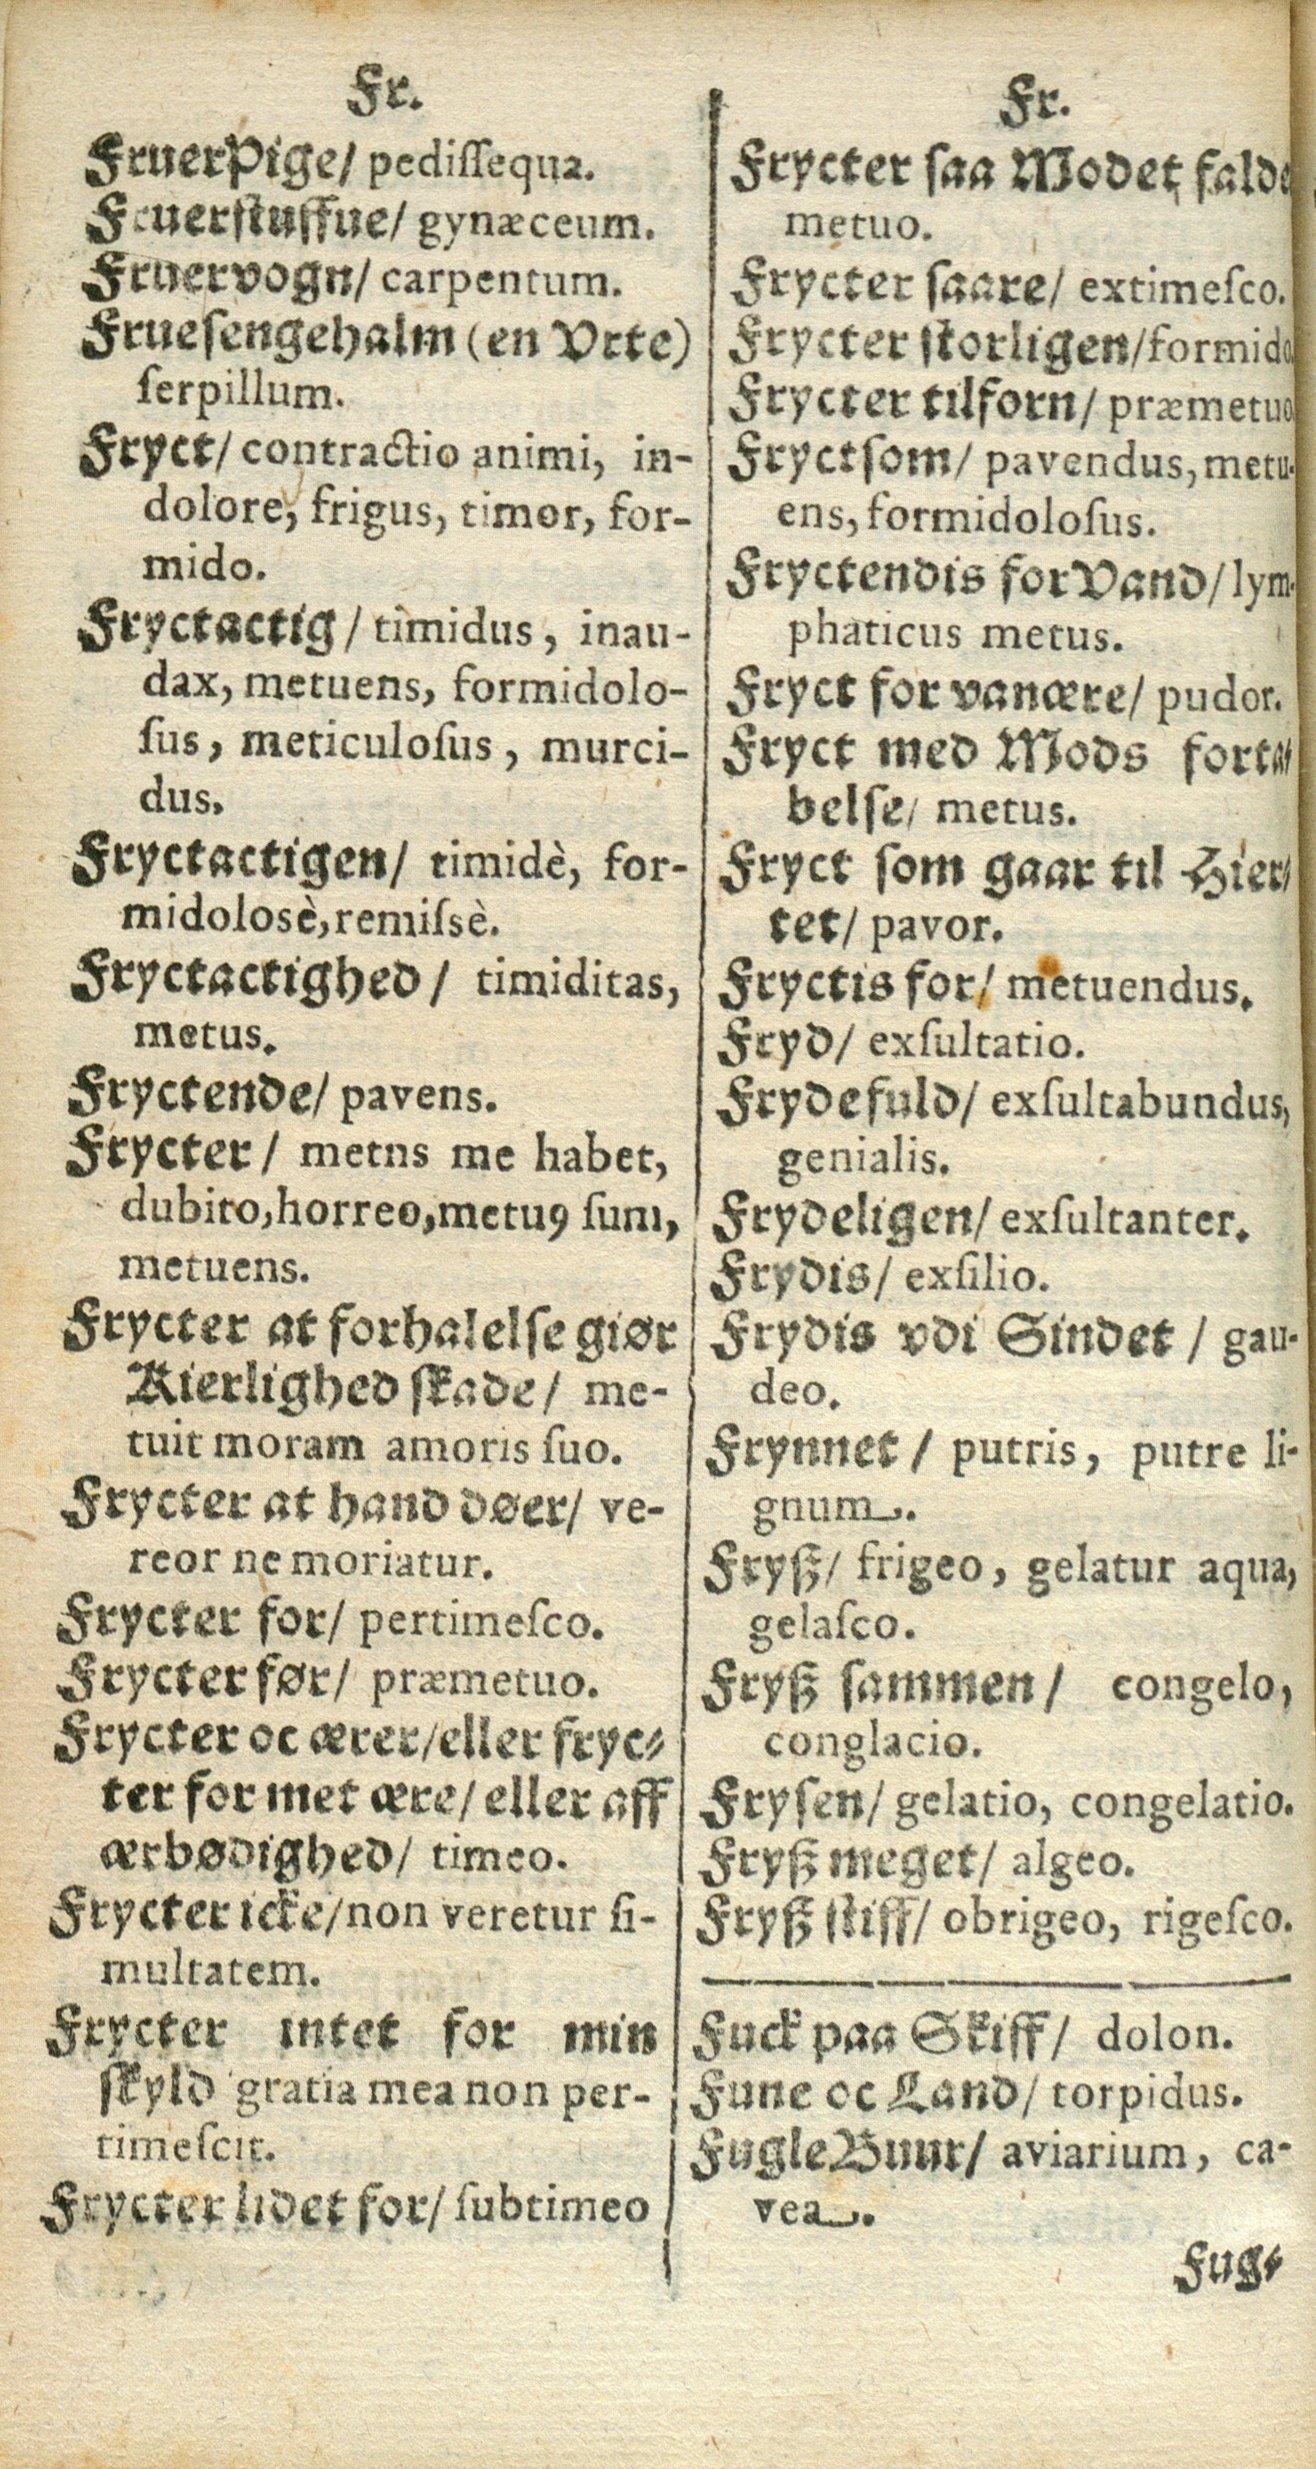 Fr.
FruerPige/ pediſſequa.
Fruerſtuffue/ gynæceum.
Fruervogn/ carpentum.
Frueſengehalm (en Vrte)
ſerpillum.
Fryct/ contractio animi, in-
dolore, frigus, timor, for-
mido.
Fryctactig / timidus, inau-
dax, metuens, formidolo-
ſus, meticuloſus, murci-
dus.
Fryctactigen/ timidè, for-
midolosè, remiſsè.
Fryctactighed / timiditas,
metus.
Fryctende/ pavens.
Frycter / metns me habet,
dubito, horreo, metuꝯ ſum,
metuens.
Frycter at forhalelſe giør
Kierlighed ſkade/ me-
tuit moram amoris ſuo.
Frycter at hand døer/ ve-
reor ne moriatur.
Frycter for/ pertimeſco.
Frycter før/ præmetuo.
Frycter oc ærer/eller fryc⸗
ter for met ære/ eller aff
ærbødighed/ timeo.
Frycter icke/non veretur ſi-
multatem.
Frycter intet for min
ſkyld gratia mea non per-
timeſcit.
Frycter lidet for/ ſubtimeo
Fr.
Frycter ſaa Modet falde
metuo.
Frycter ſaare/ extimeſco.
Frycter ſtorligen/formido.
Frycter tilforn/ præmetuo
Fryctſom/ pavendus, metu-
ens, formidoloſus.
Fryctendis for Vand/ lym-
phaticus metus.
Fryct for vanære/ pudor.
Fryct med Mods forta⸗
belſe/ metus.
Fryct ſom gaar til Hier⸗
tet/ pavor.
Fryctis for/ metuendus.
Fryd/ exſultatio.
Frydefuld/ exſultabundus,
genialis.
Frydeligen/ exſultanter.
Frydis/ exſilio.
Frydis vdi Sindet / gau-
deo.
Frynnet / putris, putre li-
gnum.
Fryß/ frigeo, gelatur aqua,
gelaſco.
Fryß ſammen/ congelo,
conglacio.
Fryſen/ gelatio, congelatio.
Fryß meget/ algeo.
Fryß ſtiff/ obrigeo, rigeſco.
Fuck paa Skiff/ dolon.
Fune oc Land/ torpidus.
FugleBuur/ aviarium, ca-
vea.
Fug⸗